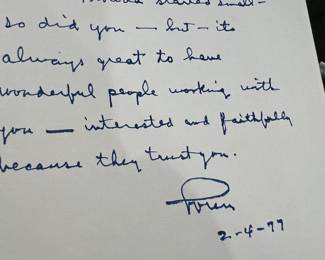 started small -
so did you — but - its
always great to have
wonderful people working with
you — interested and faithfully
because they trust you.
2-4-77